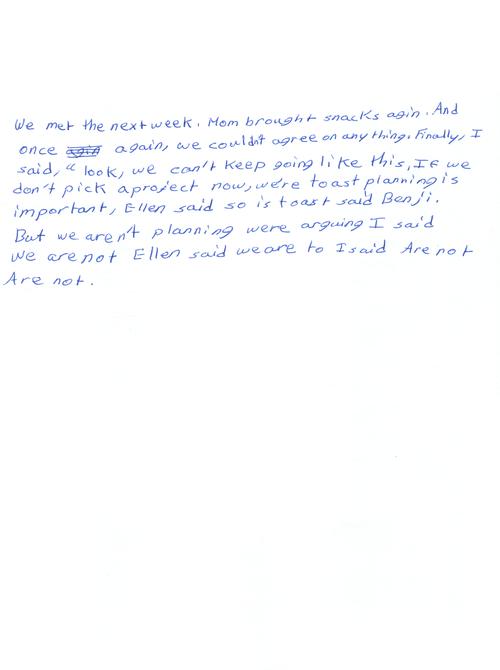 We met the next week. Mom brought snacks agin. And
once again, we couldn't agree on any thing. Finally, I
said, " look, we can't keep going like this, If we
don't pick a project now, we're toast planning is
important, Ellen said so is toast said Benji.
But we aren't planning were arguing I said
We are not Ellen said we are to I said Are not
Are not.